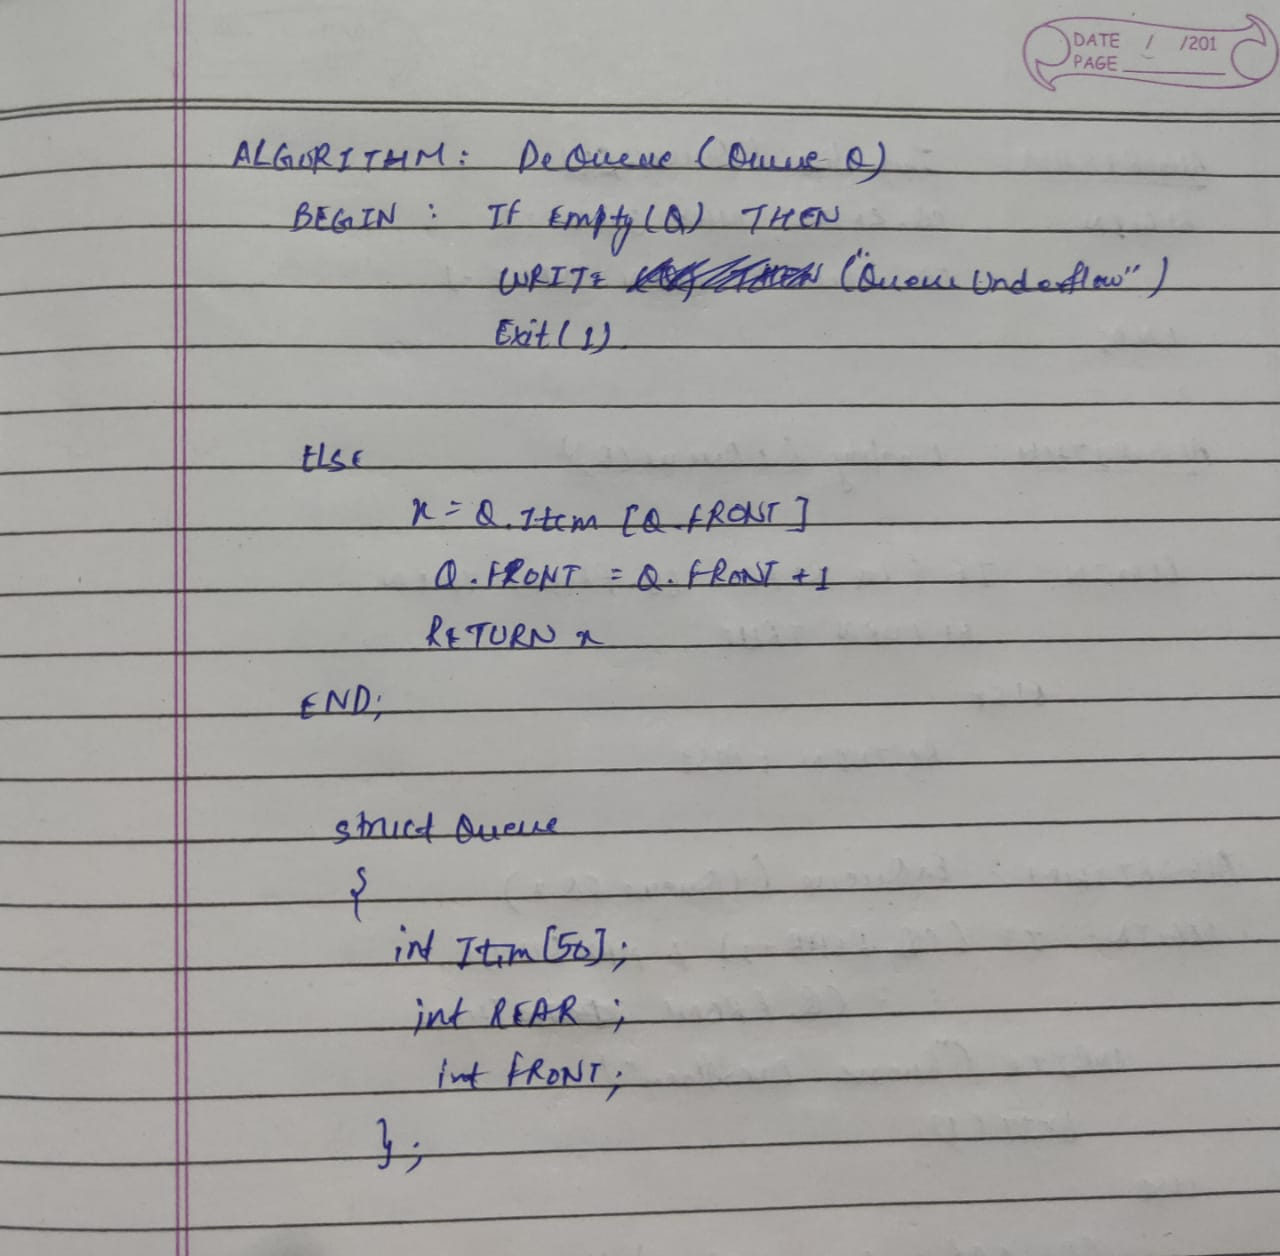 DATE / /201
PAGE
ALGORITHM: DeQueue (Queue Q)
BEGIN : If Empty(Q) THEN
WRITE ("Queue Underflow")
Exit(1)
ELSE
x = Q.Item [Q.FRONT]
Q.FRONT = Q.FRONT +1
RETURN x
END;
struct Queue
{
int Item[50];
int REAR;
int FRONT;
};